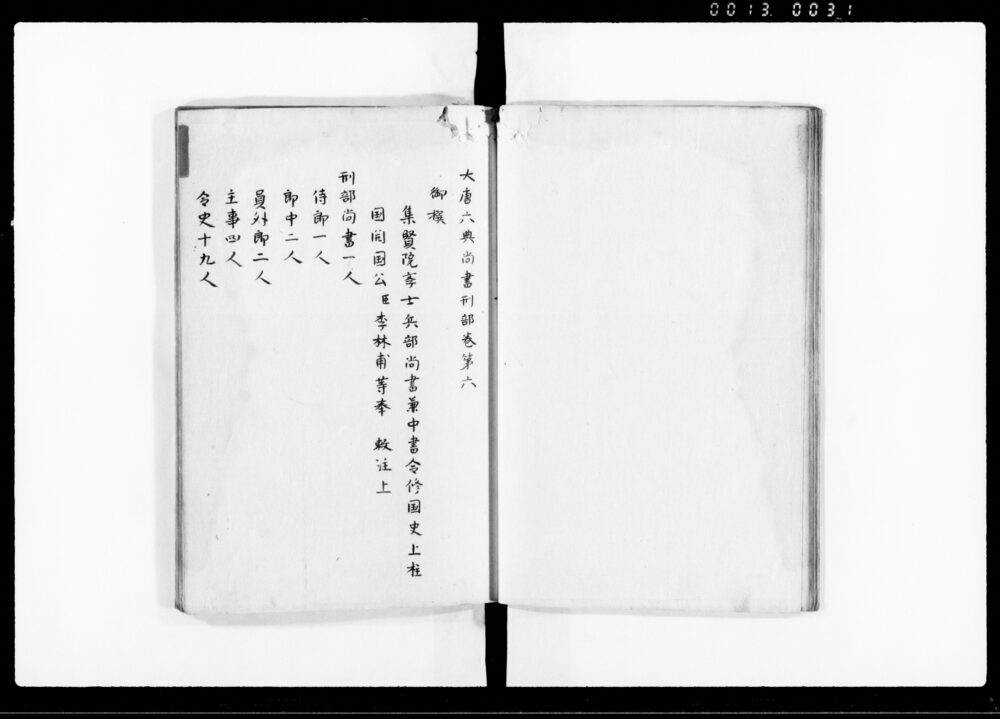 0013 0031
大唐六典尚書刑部巻第六
御撰
集賢院学士兵部尚書兼中書令修国史上柱
国開国公臣李林甫等奉 敕注上
刑部尚書一人
侍郎一人
郎中二人
員外郎二人
主事四人
令史十九人